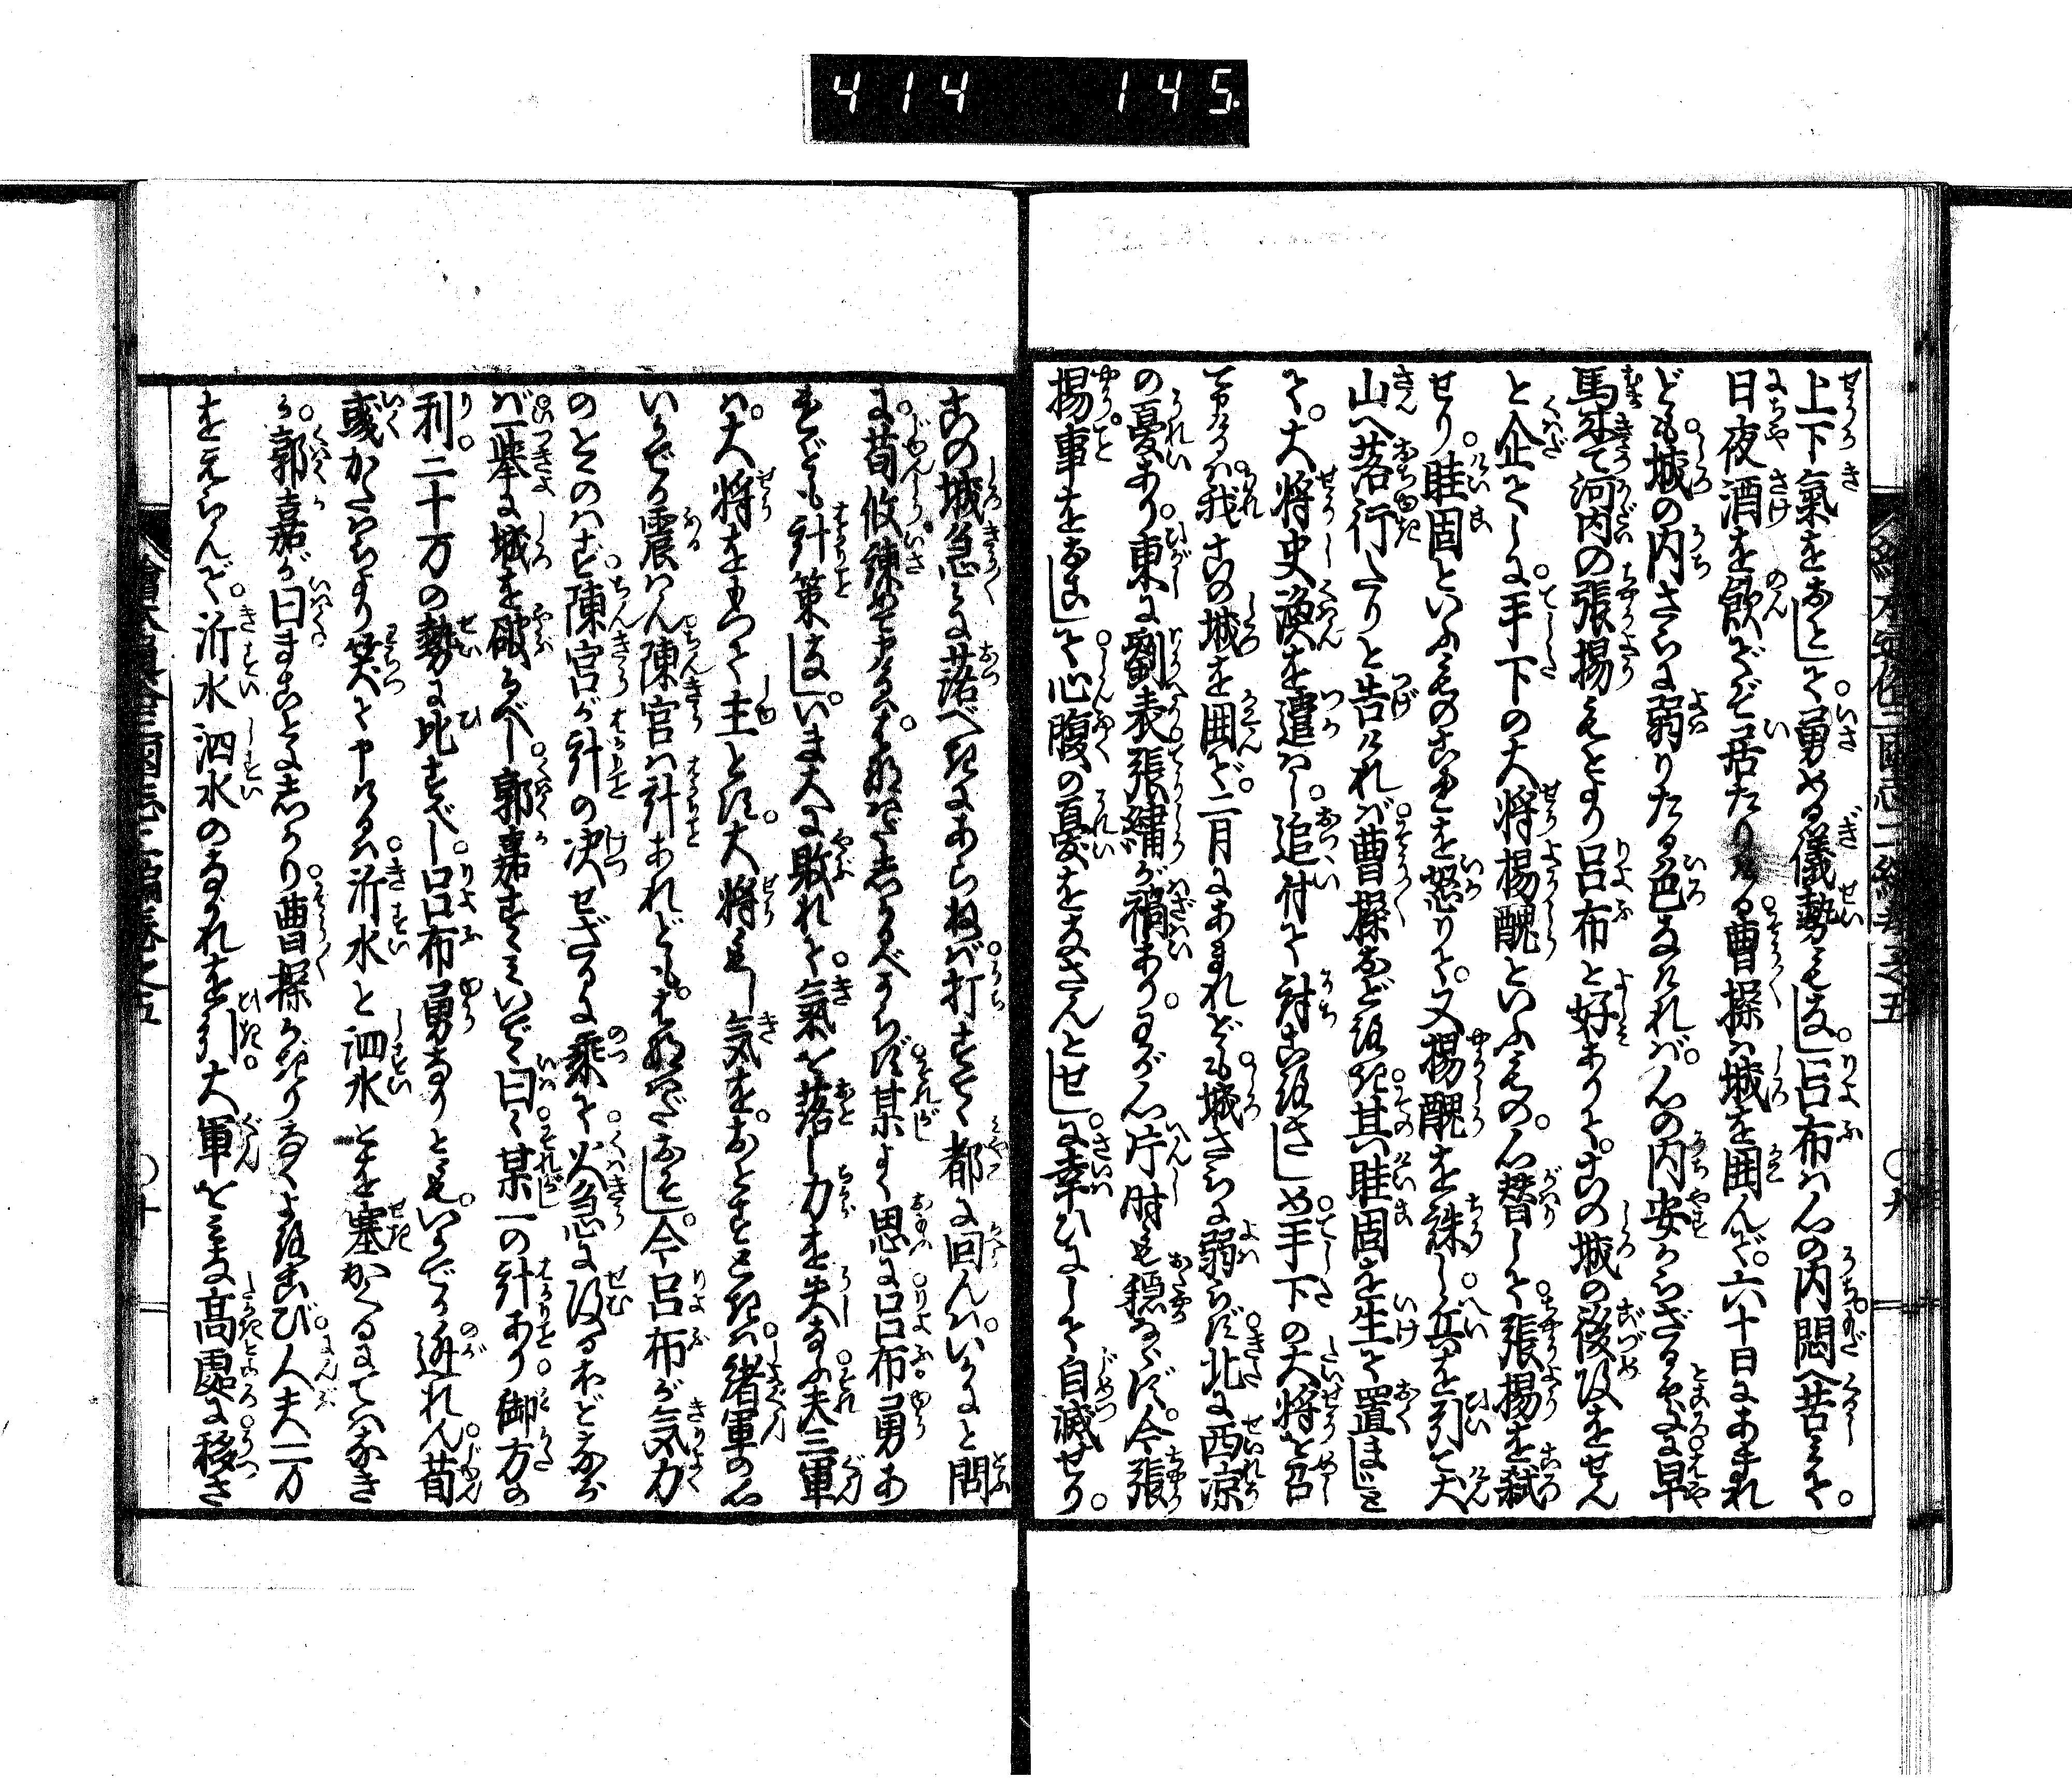 414 145.
上下氣を落して。勇める儀勢もなし。呂布は心の内悶へ苦みて。
日夜酒を飲でぞ居たりける曹操は城を囲んで。六十日にあまれ
ども。城の内さらに弱りたる色なければ。心の内安からざる処に早
馬来て河内の張揚もとより呂布と好ありて。この城の後攻をせん
と企てしに。手下の大将楊醜といふもの。心替して。張揚を弑
せり。眭固といふものこれを怒りて。又楊醜を誅し。兵を引て犬
山へ落行たりと告ければ。曹操おどろき。其眭固を生て置まじと
て。大将史渙を遣はし。追付て討ころさしめ。手下の大将を召
て申けるは。我この城を囲んで。二月にあまれども。城さらに弱らず。北に西涼
の憂あり。東に劉表張繍が禍あり。わが心片時も穏ならず。今張
揚事をおこして。心腹の憂をなさんとせしに。幸ひにして自滅せり。
この城急々に落べきにあらねば。打すてて都に回んは。いかにと問
に。荀攸諫めて申すは。はなはだしかるべからず。某よく思に呂布勇あ
れども計策なし。いま大に敗れて。氣を落し力を失なふ。夫三軍
は。大将をもつて主とす。大将もし気を。おとすときは。諸軍の心
いかでか震はん。陳宮は計あれども。はなはだおそし。今呂布が気力
のととのはず。陳宮が計の決せざるに乗て。火急に攻るほどなら
ば。一挙に城を破るべし。郭嘉すすみいでて曰く。某一の計あり。御方の
利。二十万の勢に比すべし。呂布勇なりとも。いかでか逃れん。荀
彧かたはらより笑て申けるは。沂水と泗水とを塞かくるにてはなき
か。郭嘉が曰まことにしかり。曹操かぎりなくよろこび。人夫一万
をえらんで。沂水泗水のながれを引。大軍をみな高處に移さ